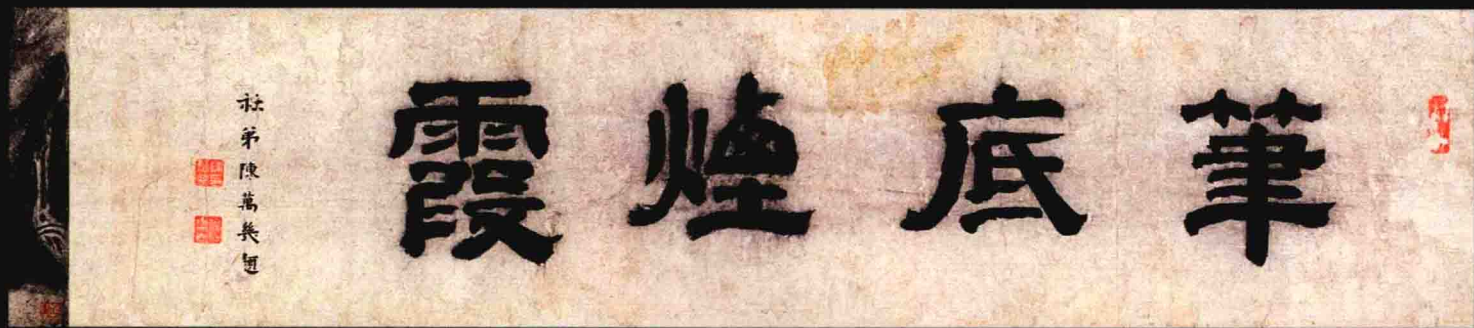 筆底煙霞
社弟陳萬幾題